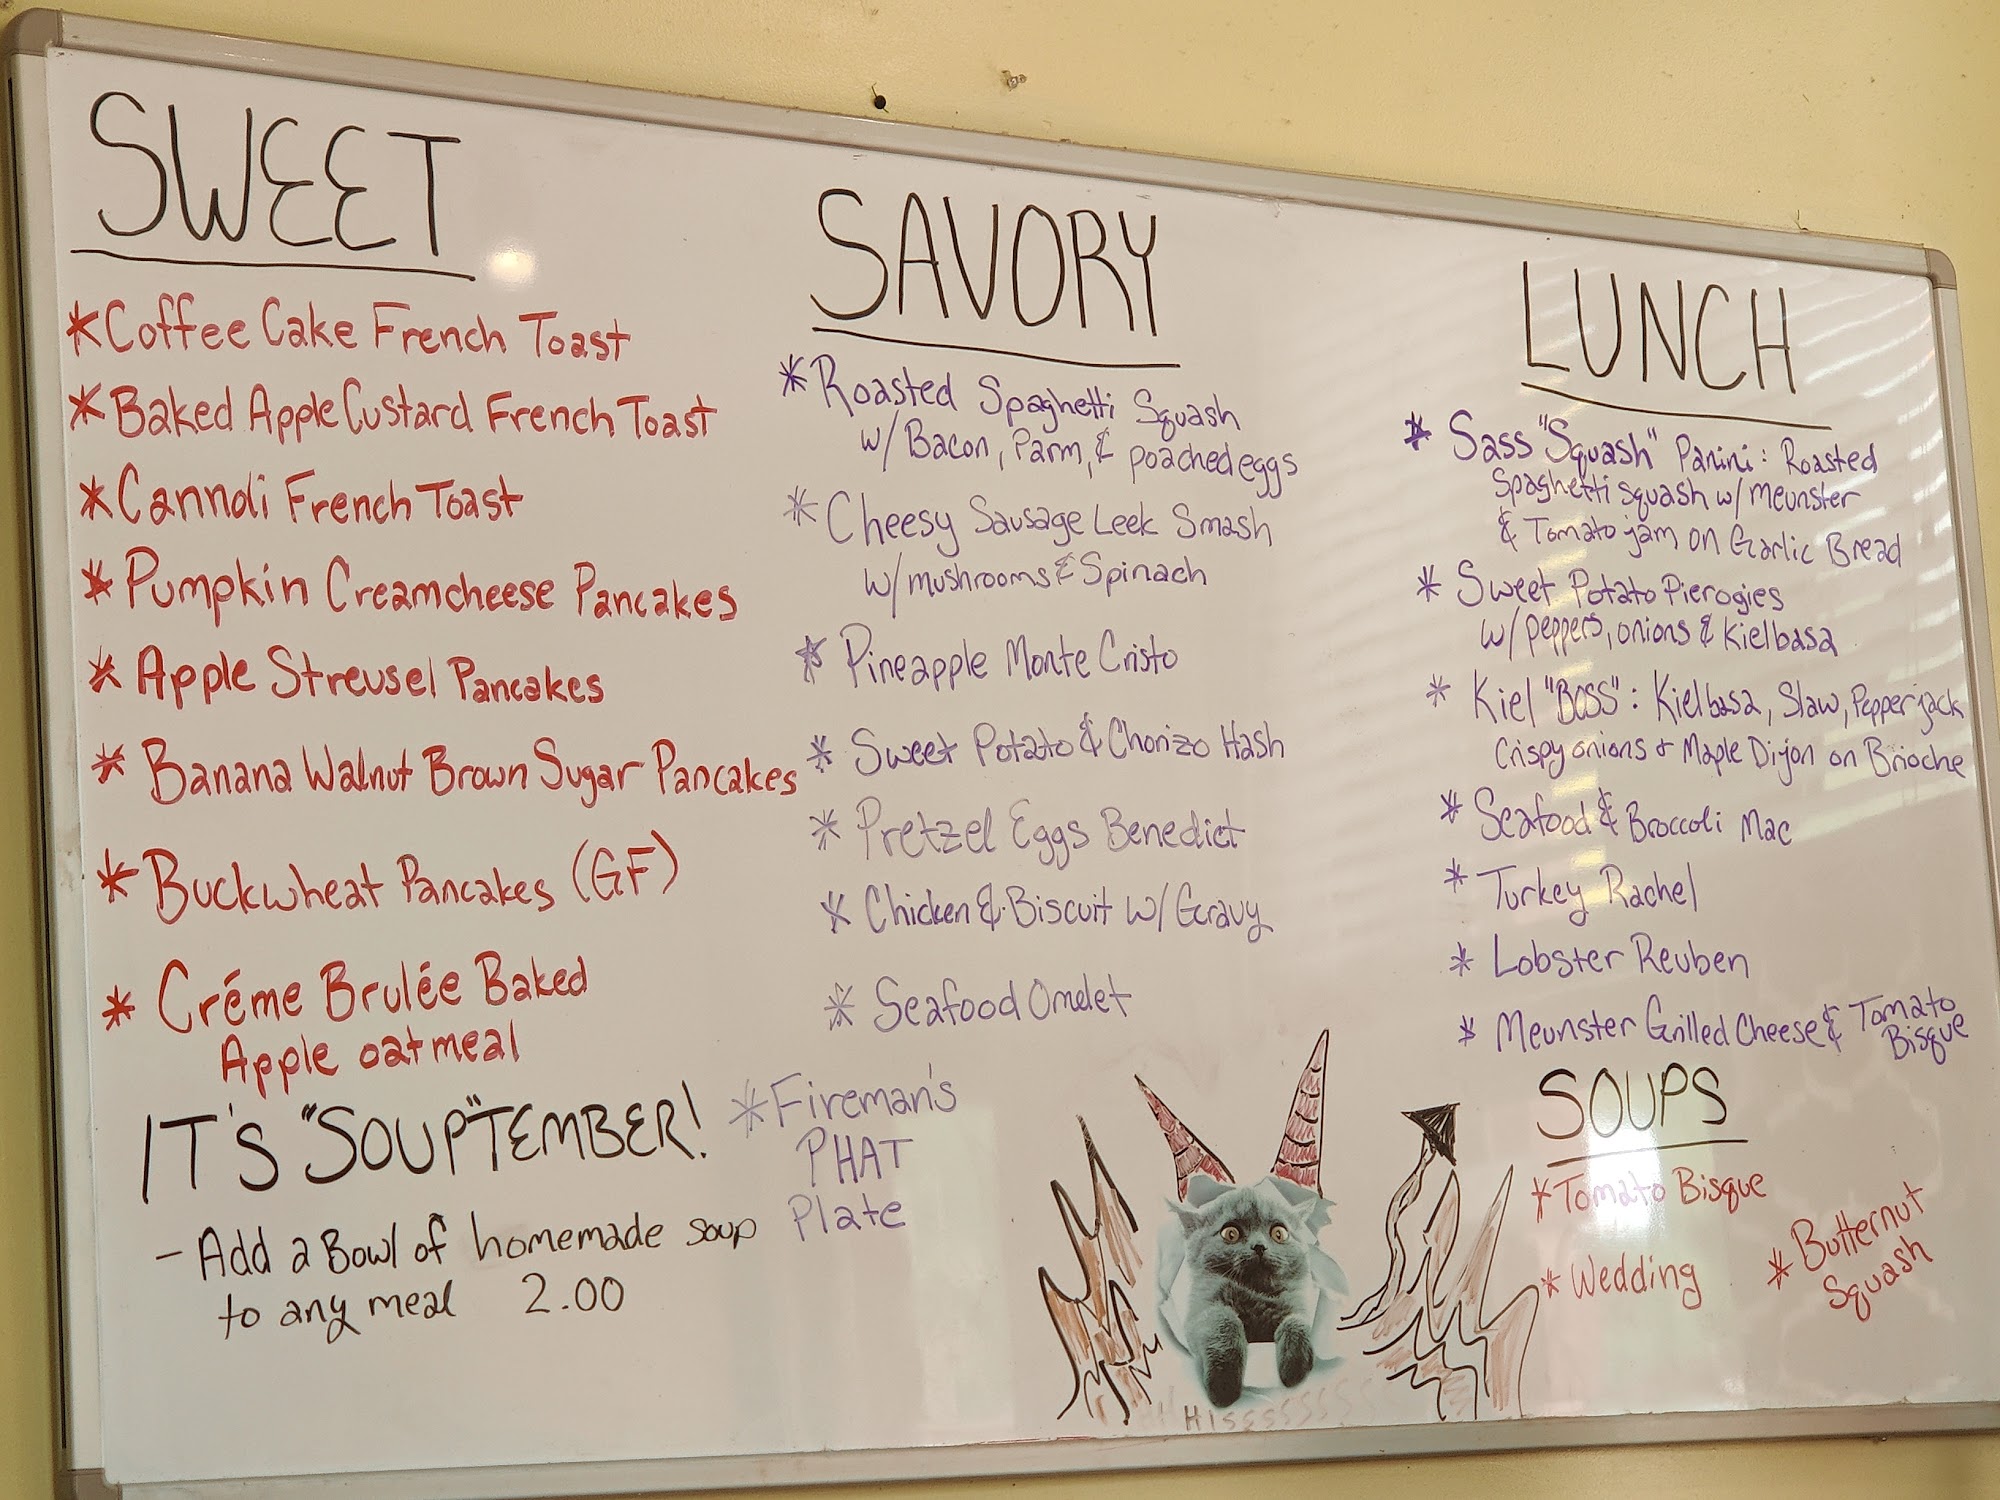 SWEET
*Coffee Cake French Toast
*Baked Apple Custard French Toast
*Cannoli French Toast
*Pumpkin Creamcheese Pancakes
*Apple Streusel Pancakes
*Banana Walnut Brown Sugar Pancakes
*Buckwheat Pancakes (GF)
*Créme Brulée Baked
Apple oatmeal
IT'S "SOUP"TEMBER!
- Add a Bowl of homemade soup
to any meal 2.00
SAVORY
*Roasted Spaghetti Squash
w/Bacon, Parm, & poached eggs
*Cheesy Sausage Leek Smash
w/mushrooms & Spinach
*Pineapple Monte Cristo
*Sweet Potato & Chorizo Hash
*Pretzel Eggs Benedict
*Chicken & Biscuit w/Gravy
*Seafood Omelet
*Fireman's
PHAT
Plate
LUNCH
*Sass "Squash" Panini: Roasted
Spaghetti Squash w/ Meunster
& Tomato jam on Garlic Bread
*Sweet Potato Pierogies
w/peppers, onions & Kielbasa
*Kiel "BOSS": Kielbasa, Slaw, Pepperjack
Crispy onions & Maple Dijon on Brioche
*Seafood & Broccoli Mac
*Turkey Rachel
*Lobster Reuben
*Meunster Grilled Cheese & Tomato
Bisque
SOUPS
*Tomato Bisque
*Wedding
*Butternut
Squash
Hisssssssssss